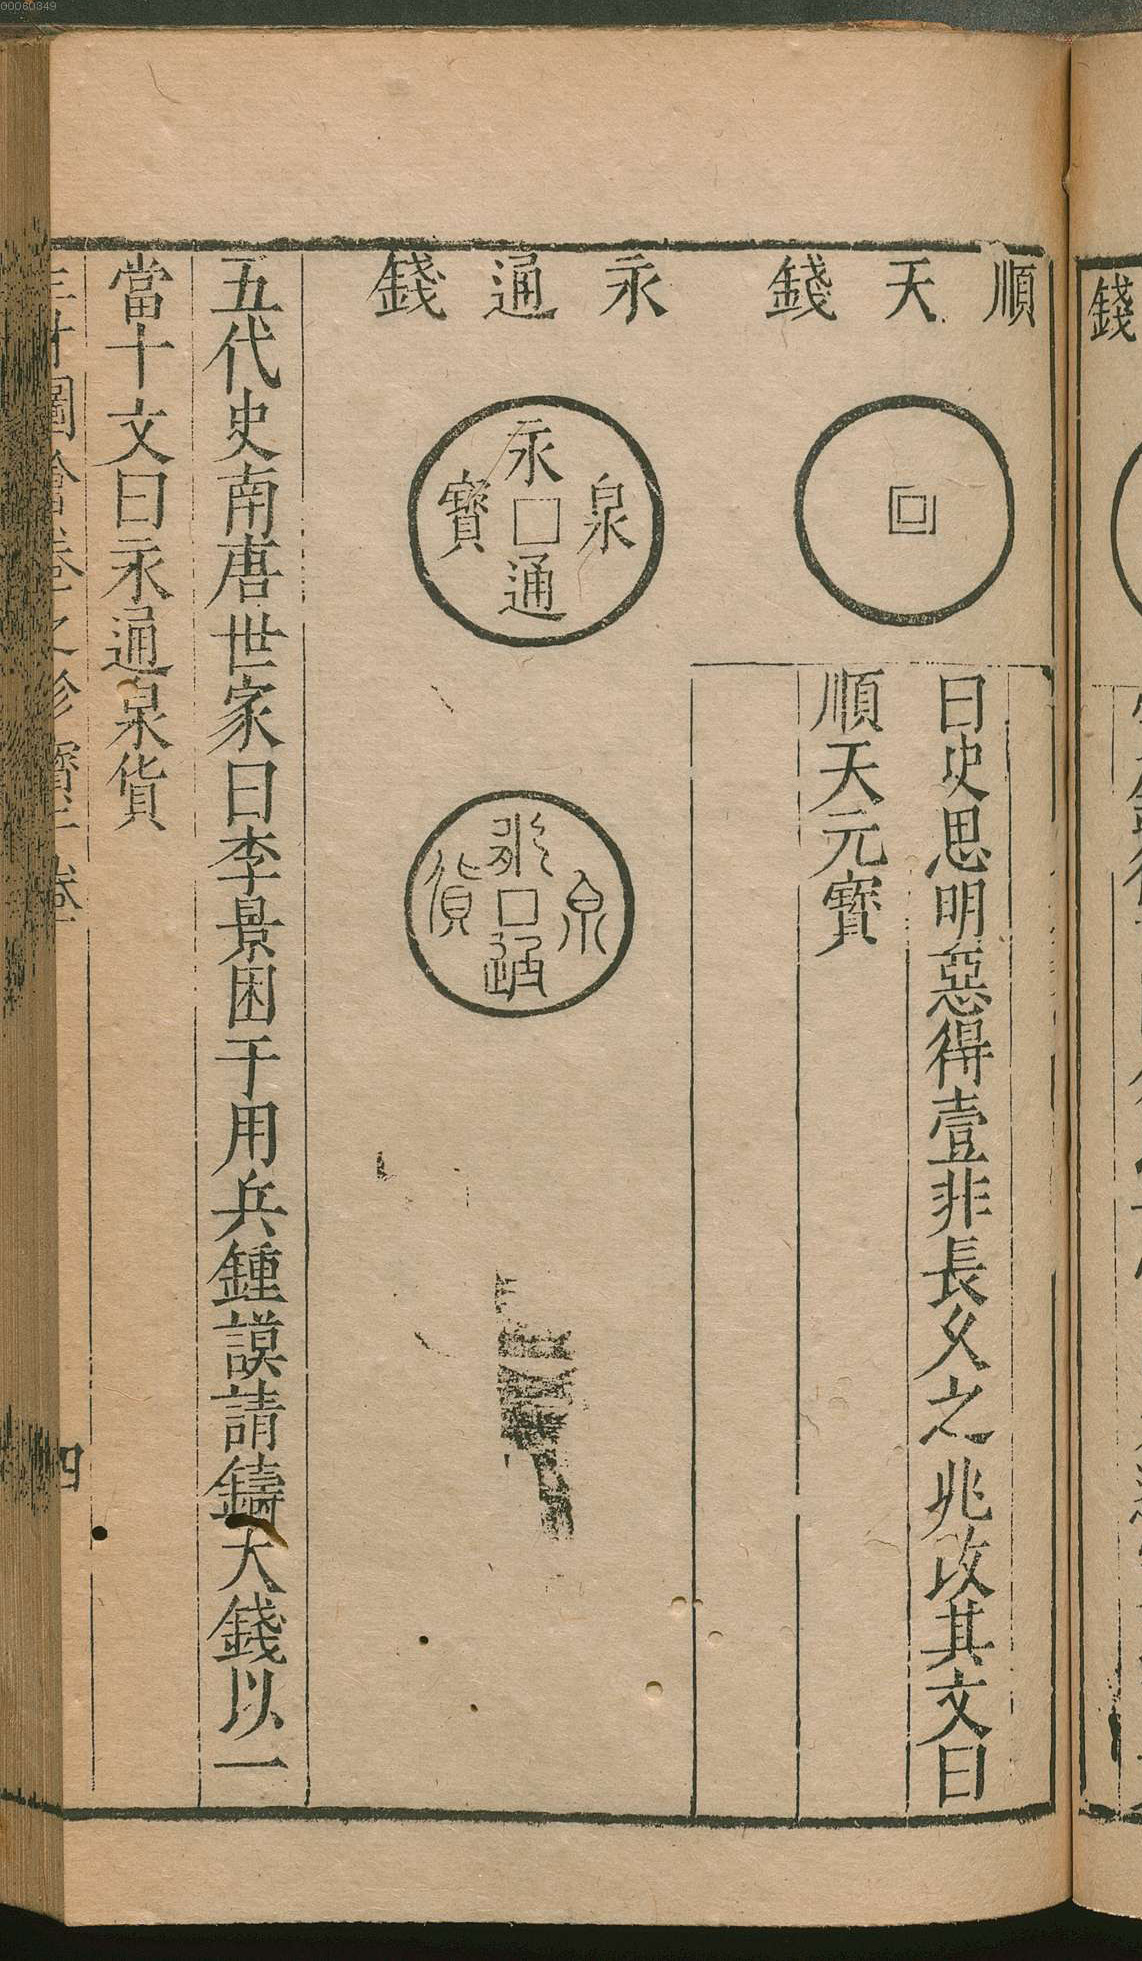 00060349
錢
順天錢
曰史思明惡得壹非長久之兆改其文曰
順天元寶
永通錢
永通泉寶
永通泉貨
五代史南唐世家曰李景困于用兵鍾謨請鑄大錢以一
當十文曰永通泉貨
三才圖會卷之珍寶二卷
四